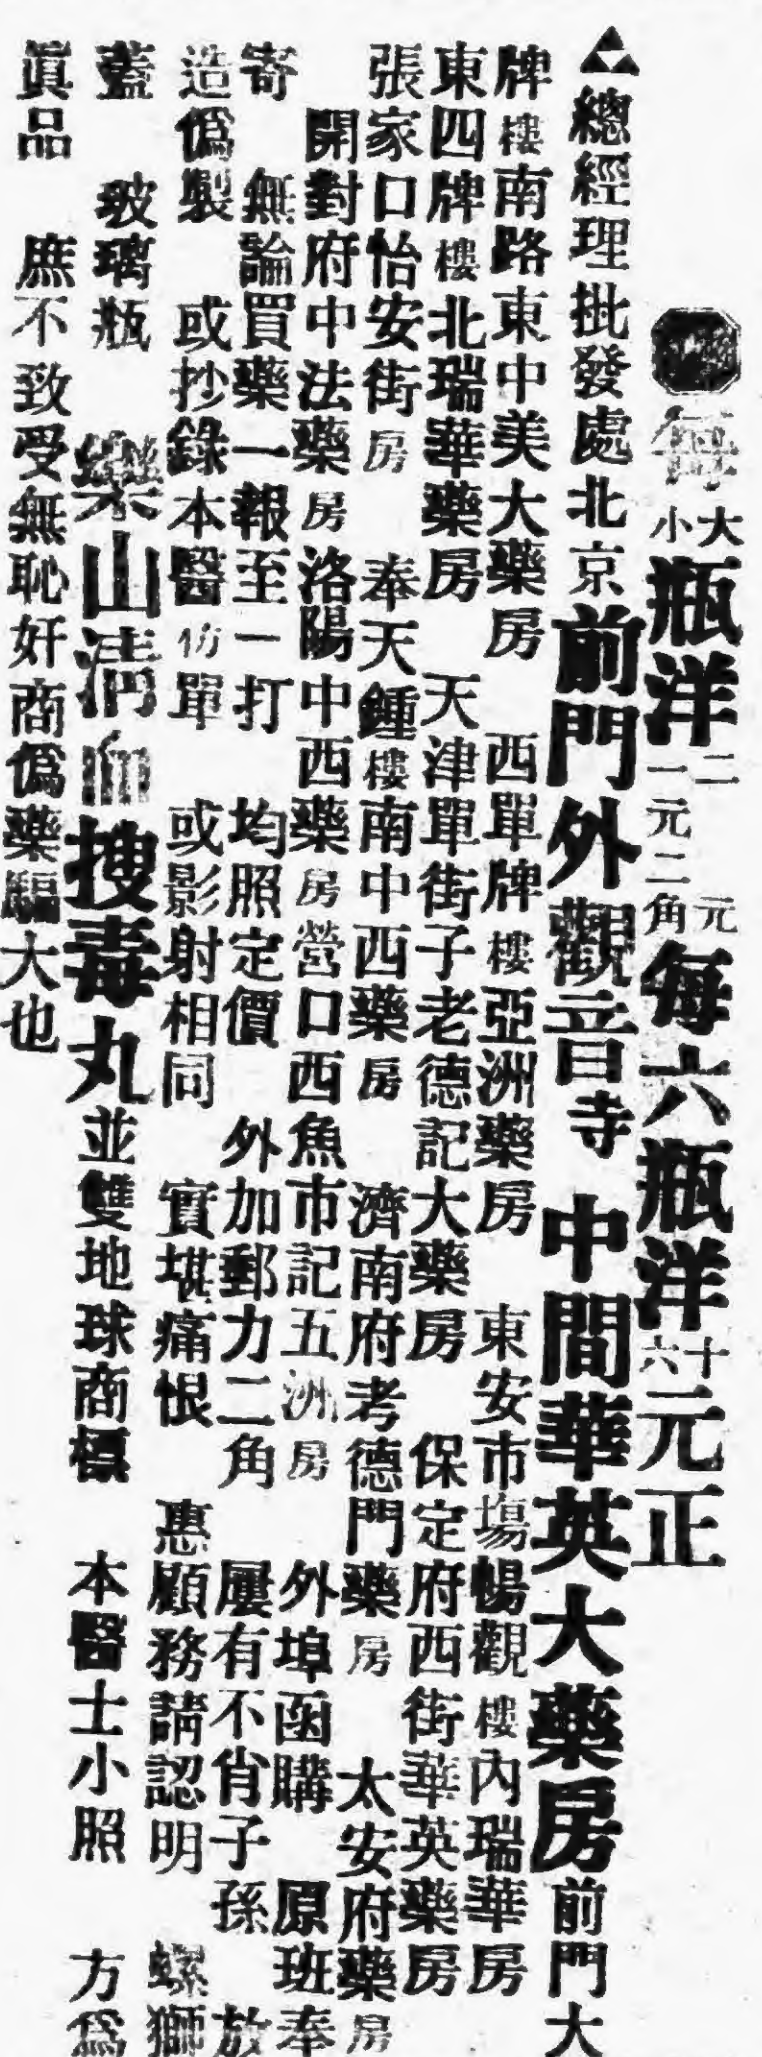 每大小瓶洋二元一元二角每六瓶洋十六元正
▲總經理批發處北京前門外觀音寺 中間華英大藥房前門大
牌樓南路東中美大藥房 西單牌樓亞洲藥房 東安市場暢觀樓內瑞華房
東四牌樓北瑞華藥房 天津單街子老德記大藥房 保定府西街華英藥房
張家口怡安街房 奉天鍾樓南中西藥房 濟南府考德門藥房 太安府藥房
開對府中法藥房洛陽中西藥房營口西魚市記五洲房 外埠函購 原班奉
寄 無論買藥一報至一打 均照定價 外加郵力二角 屢有不肖子孫 放
造僞製 或抄錄本醫仿單 或影射相同 實堪痛恨 惠顧務請認明 螺獅
蓋 玻璃瓶 樂山清血搜毒丸並雙地球商標 本醫士小照 方爲
眞品 庶不致受無恥奸商僞藥騙大也